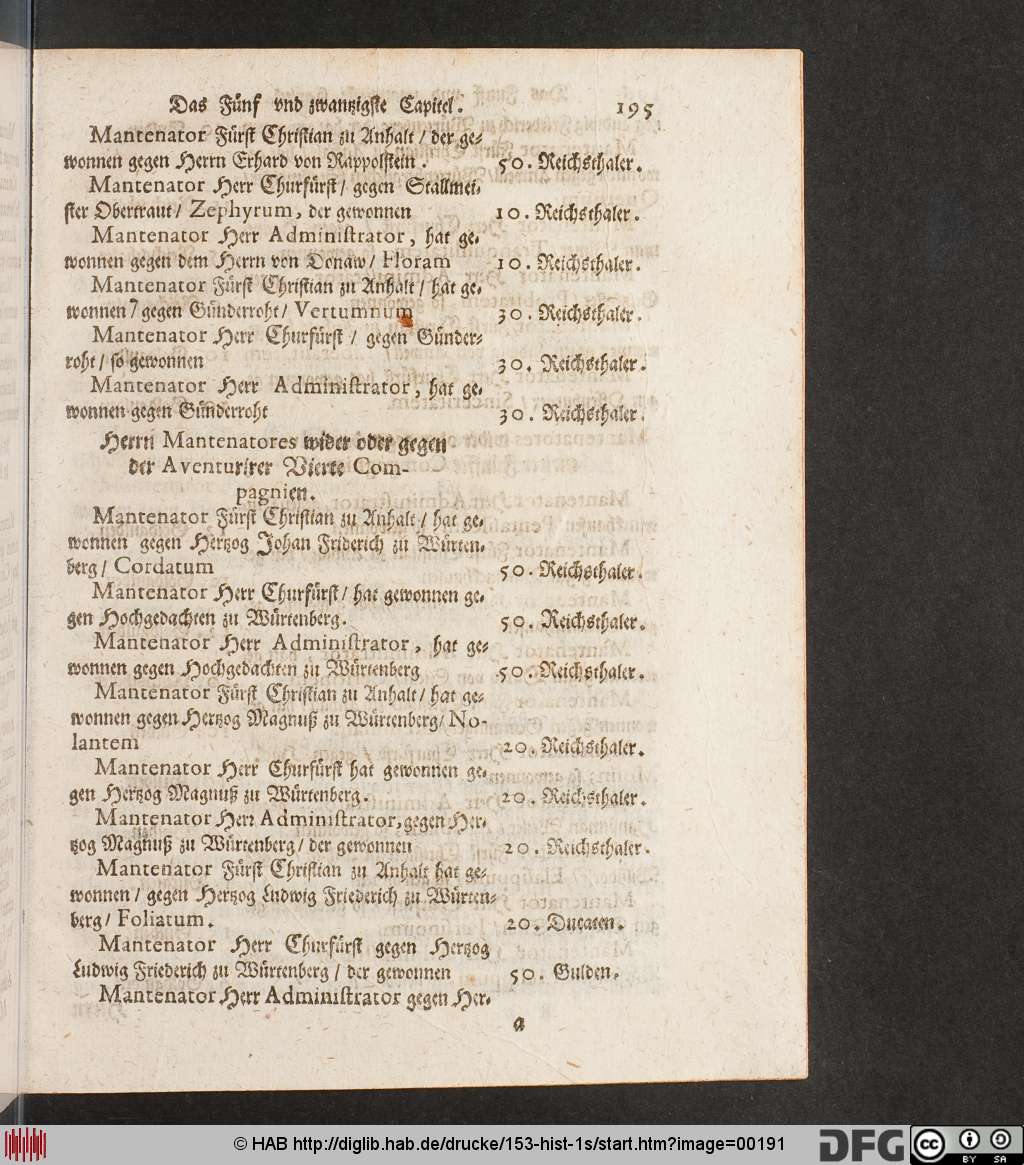 Das Fünf vnd zwantzigste Capitel. 195
Mantenator Fürst Christian zu Anhalt / der ge-
wonnen gegen Herrn Erhard von Rappolstein. 50. Reichsthaler.
Mantenator Herr Churfürst / gegen Stallmei-
ster Obertraut / Zephyrum, der gewonnen 10. Reichsthaler.
Mantenator Herr Administrator, hat ge-
wonnen gegen dem Herrn von Donaw / Floram 10. Reichsthaler.
Mantenator Fürst Christian zu Anhalt / hat ge-
wonnen / gegen Günderroht / Vertumnum 30. Reichsthaler.
Mantenator Herr Churfürst / gegen Günder-
roht / so gewonnen 30. Reichsthaler.
Mantenator Herr Administrator, hat ge-
wonnen gegen Günderroht 30. Reichsthaler.
Herrn Mantenatores wider oder gegen
der Aventurirer Vierte Com-
pagnien.
Mantenator Fürst Christian zu Anhalt / hat ge-
wonnen gegen Hertzog Johan Friderich zu Würten-
berg / Cordatum 50. Reichsthaler.
Mantenator Herr Churfürst / hat gewonnen ge-
gen Hochgedachten zu Würtenberg. 50. Reichsthaler.
Mantenator Herr Administrator, hat ge-
wonnen gegen Hochgedachten zu Würtenberg 50. Reichsthaler.
Mantenator Fürst Christian zu Anhalt / hat ge-
wonnen gegen Hertzog Magnuß zu Würtenberg / No-
lantem 20. Reichsthaler.
Mantenator Herr Churfürst hat gewonnen ge-
gen Hertzog Magnuß zu Würtenberg. 20. Reichsthaler.
Mantenator Herr Administrator, gegen Her-
tzog Magnuß zu Würtenberg / der gewonnen 20. Reichsthaler.
Mantenator Fürst Christian zu Anhalt hat ge-
wonnen / gegen Hertzog Ludwig Friederich zu Würten-
berg / Foliatum. 20. Ducaten.
Mantenator Herr Churfürst gegen Hertzog
Ludwig Friederich zu Würtenberg / der gewonnen 50. Gulden.
Mantenator Herr Administrator gegen Her-
a
© HAB http://diglib.hab.de/drucke/153-hist-1s/start.htm?image=00191
DFG cc BY SA